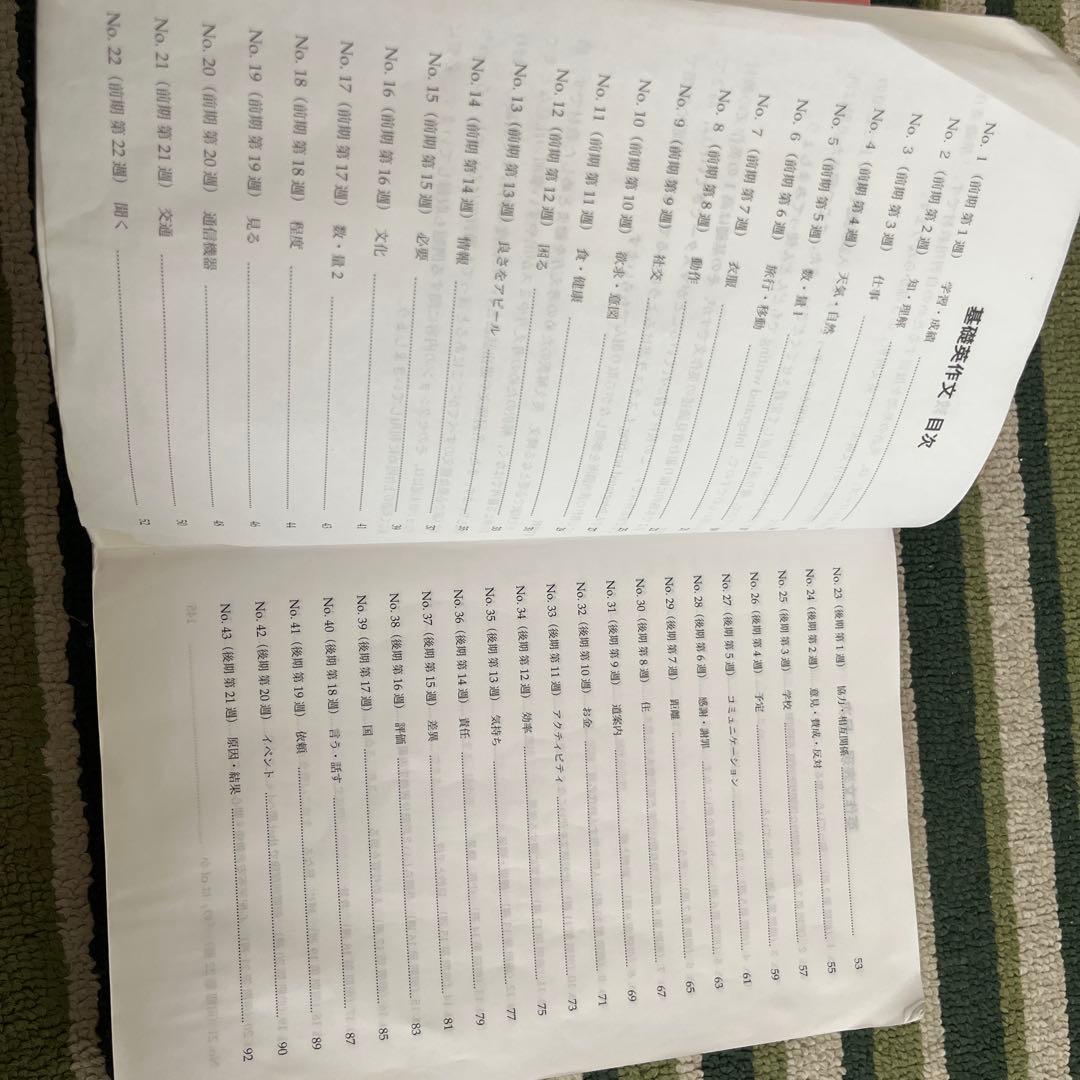 基礎英作文 目次
No. 1（前期 第 1 週） 学習・成績
No. 2（前期 第 2 週） 知・理解
No. 3（前期 第 3 週） 仕事
No. 4（前期 第 4 週） 天気・自然
No. 5（前期 第 5 週） 数・量 1
No. 6（前期 第 6 週） 旅行・移動
No. 7（前期 第 7 週） 衣服
No. 8（前期 第 8 週） 動作
No. 9（前期 第 9 週） 社交
No. 10（前期 第 10 週） 欲求・意図
No. 11（前期 第 11 週） 食・健康
No. 12（前期 第 12 週） 困る
No. 13（前期 第 13 週） 良さをアピール
No. 14（前期 第 14 週） 情報
No. 15（前期 第 15 週） 必要
No. 16（前期 第 16 週） 文化 41
No. 17（前期 第 17 週） 数・量 2 43
No. 18（前期 第 18 週） 程度 44
No. 19（前期 第 19 週） 見る 46
No. 20（前期 第 20 週） 通信機器 48
No. 21（前期 第 21 週） 交通 50
No. 22（前期 第 22 週） 聞く 52
No. 23（後期 第 1 週） 協力・相互関係 53
No. 24（後期 第 2 週） 意見・賛成・反対 55
No. 25（後期 第 3 週） 学校 57
No. 26（後期 第 4 週） 予定 59
No. 27（後期 第 5 週） コミュニケーション 61
No. 28（後期 第 6 週） 感謝・謝罪 63
No. 29（後期 第 7 週） 距離 65
No. 30（後期 第 8 週） 住 67
No. 31（後期 第 9 週） 道案内 69
No. 32（後期 第 10 週） お金 71
No. 33（後期 第 11 週） アクティビティ 73
No. 34（後期 第 12 週） 効率 75
No. 35（後期 第 13 週） 気持ち 77
No. 36（後期 第 14 週） 責任 79
No. 37（後期 第 15 週） 差異 81
No. 38（後期 第 16 週） 評価 83
No. 39（後期 第 17 週） 国 85
No. 40（後期 第 18 週） 言う・話す 87
No. 41（後期 第 19 週） 依頼 89
No. 42（後期 第 20 週） イベント 90
No. 43（後期 第 21 週） 原因・結果 92